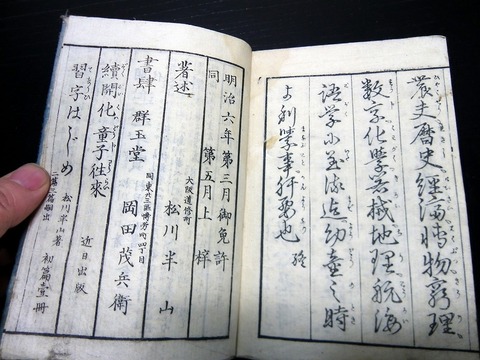 農史暦史經濟博物窮理
数字化學器械地理航海
語学に至る迄幼童之時
肝要也 終
明治六年第三月御免許
同 第五月上梓
著述 大阪道修町 松川半山
書肆 群玉堂 四丁目 岡田茂兵衛
續開化童子往來 近日出版
習字はじめ 松川半山著 二篇三篇嗣出 初篇壹冊